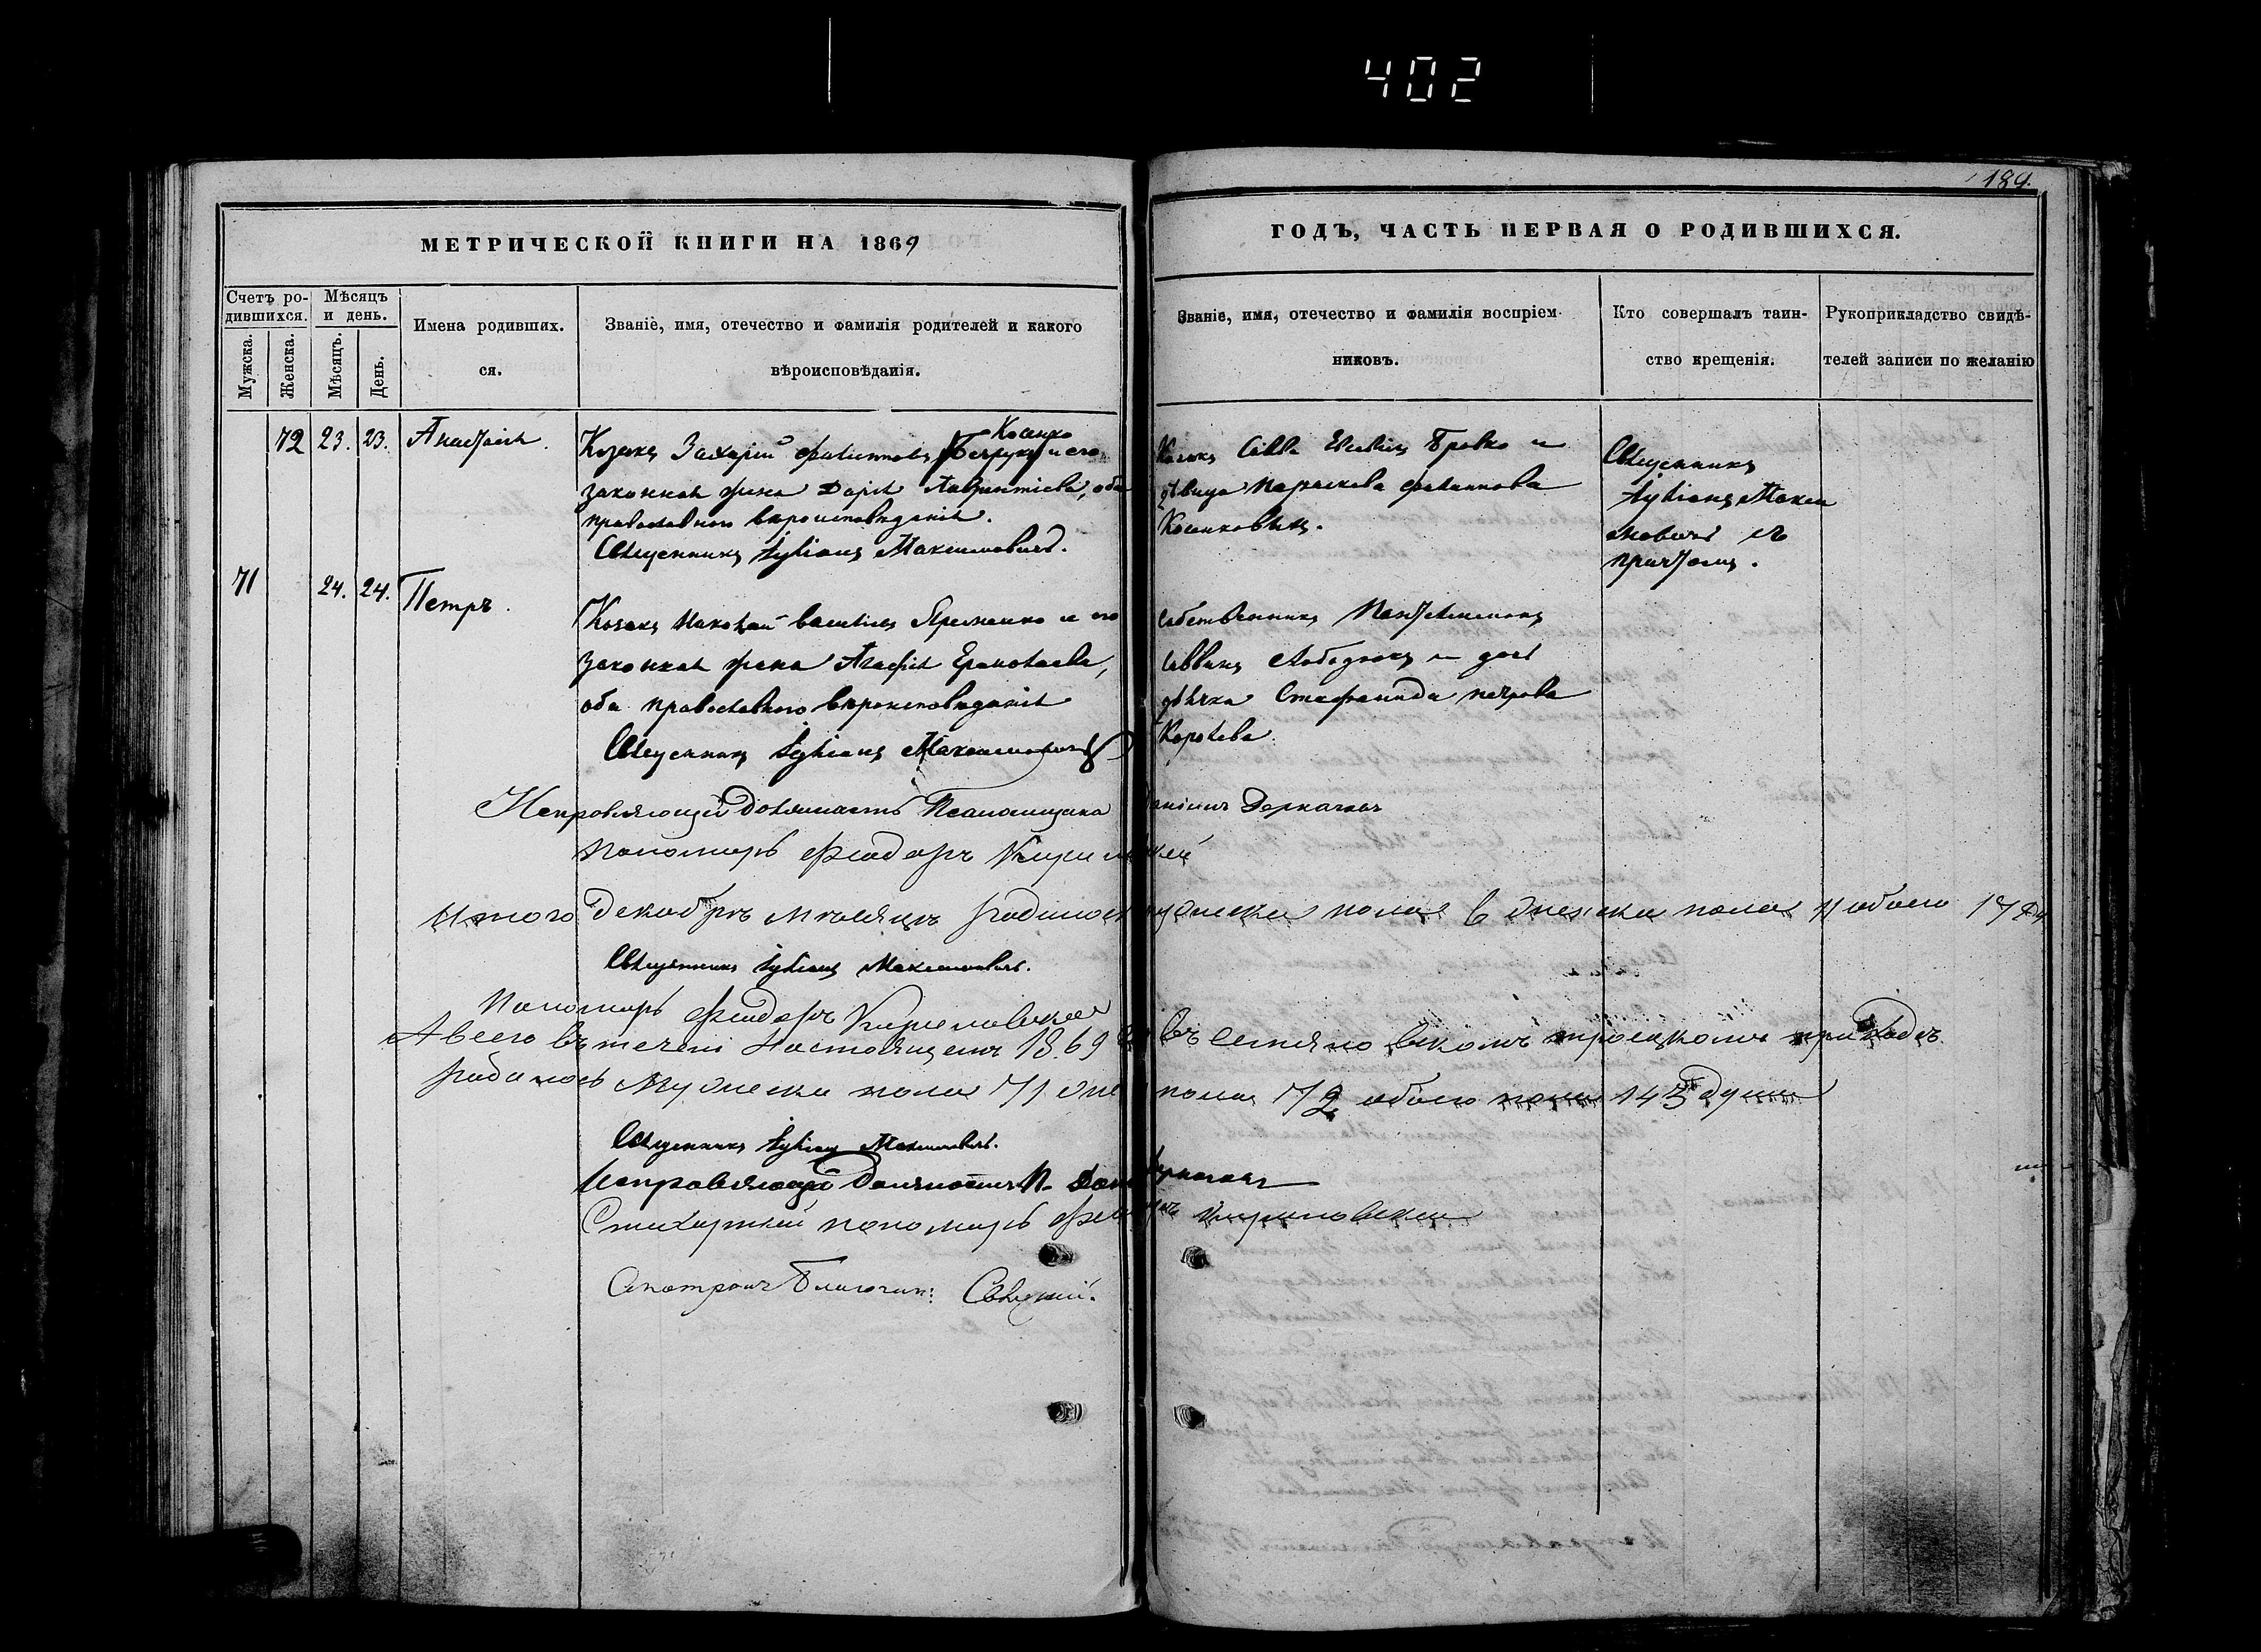 402
189.
МЕТРИЧЕСКОЙ КНИГИ НА 1869
ГОДЪ, ЧАСТЬ ПЕРВАЯ О РОДИВШИХСЯ.
Счетъ ро-
дившихся.
Мужска.
Женска.
Мѣсяцъ
и день.
Мѣсяцъ.
День.
Имена родивших.
ся.
Званіе, имя, отечество и фамилія родителей и какого
вѣроисповѣданія.
Званіе, имя, отечество и фамилія воспріем-
никовъ.
Кто совершалъ таин-
ство крещенія.
Рукоприкладство свидѣ-
телей записи по желанію
72 23. 23. Анастасія.
Косенко
Козакъ Захарій Филиповъ и его
законная жена Дарія Лаврентіева, оба
православного вѣроисповѣданія.
Священникъ Іуліанъ Максимовичъ.
Козакъ Савва Бровко и
дѣвица Параскева Филипова
Косенковна.
Священникъ
Іуліанъ Макси
мовичъ съ
причтомъ.
71 24. 24. Петръ.
Козакъ Николай Васильевъ Яременко и его
законная жена Агафія Ермолаева,
оба православного вѣроисповѣданія
Священникъ Іуліанъ Максимовичъ
Собственникъ Пантелеимонъ
Саввинъ и дочь
дьячка Стефанида Петрова
Королева
Исправляющій должность Псаломщика Даніилъ Деркачъ
Пономарь Феодоръ
Итого Декабрь мѣсяцъ родилось мужеска пола 6 женска пола 11 обоего 17
Священникъ Іуліанъ Максимовичъ.
Пономарь Феодоръ
А всего въ теченіи настоящемъ 1869 въ троицкомъ приходѣ
родилось Мужеска пола 71 жен пола 72 обоего пола 143 души
Священникъ Іуліанъ Максимовичъ.
Исправляющій должность П.
Стихарный пономарь Феодоръ
Смотрѣлъ Благочин: